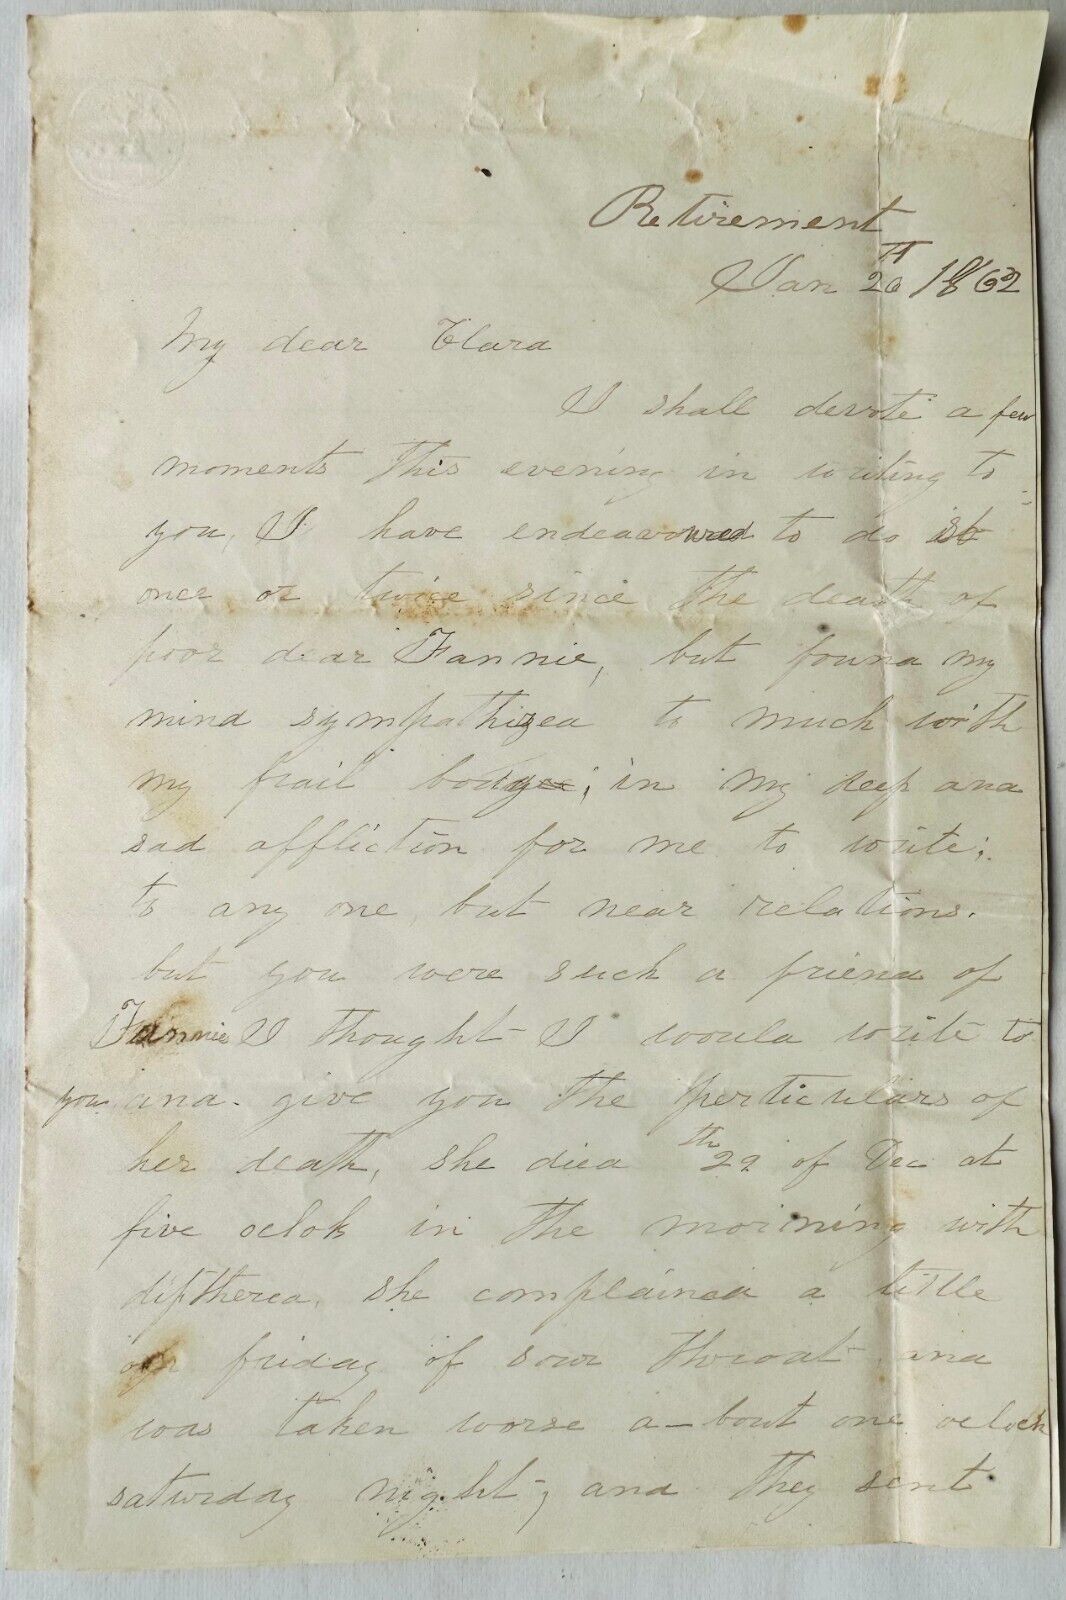 Retirement
Jan 20th 1862
My dear Clara
I shall devote a few
moments this evening in writing to
you, I have endeavoured to do so
once or twice since the death of
poor dear Fannie, but found my
mind sympathized to much with
my frail body, in my deep and
sad affliction for me to write;
to any one, but near relations.
but you were such a friend of
Fannie I thought I would write to
you and give you the perticulars of
her death, she died th 29 of Dec at
five oclok in the morning with
diptherea, she complained a little
on friday of sour throat and
was taken worse a-bout one oclock
saturday night, and they sent